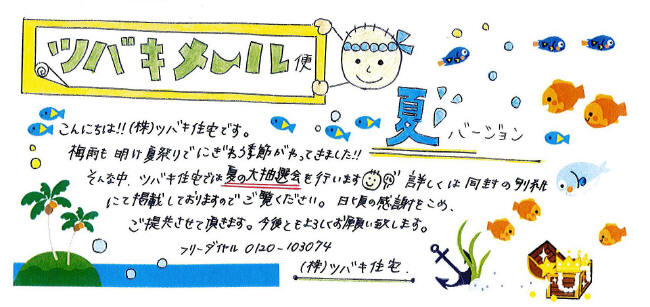 ツバキメール便
夏バージョン
こんにちは!!(株)ツバキ住宅です。
梅雨も明け夏祭りでにぎわう季節がやってきました!!
そんな中、ツバキ住宅では夏の大抽選会を行います 詳しくは同封の別紙
にて掲載しておりますのでご覧ください。日頃の感謝をこめ、
ご提供させて頂きます。今後ともよろしくお願い致します。
フリーダイヤル 0120-103074
(株)ツバキ住宅.